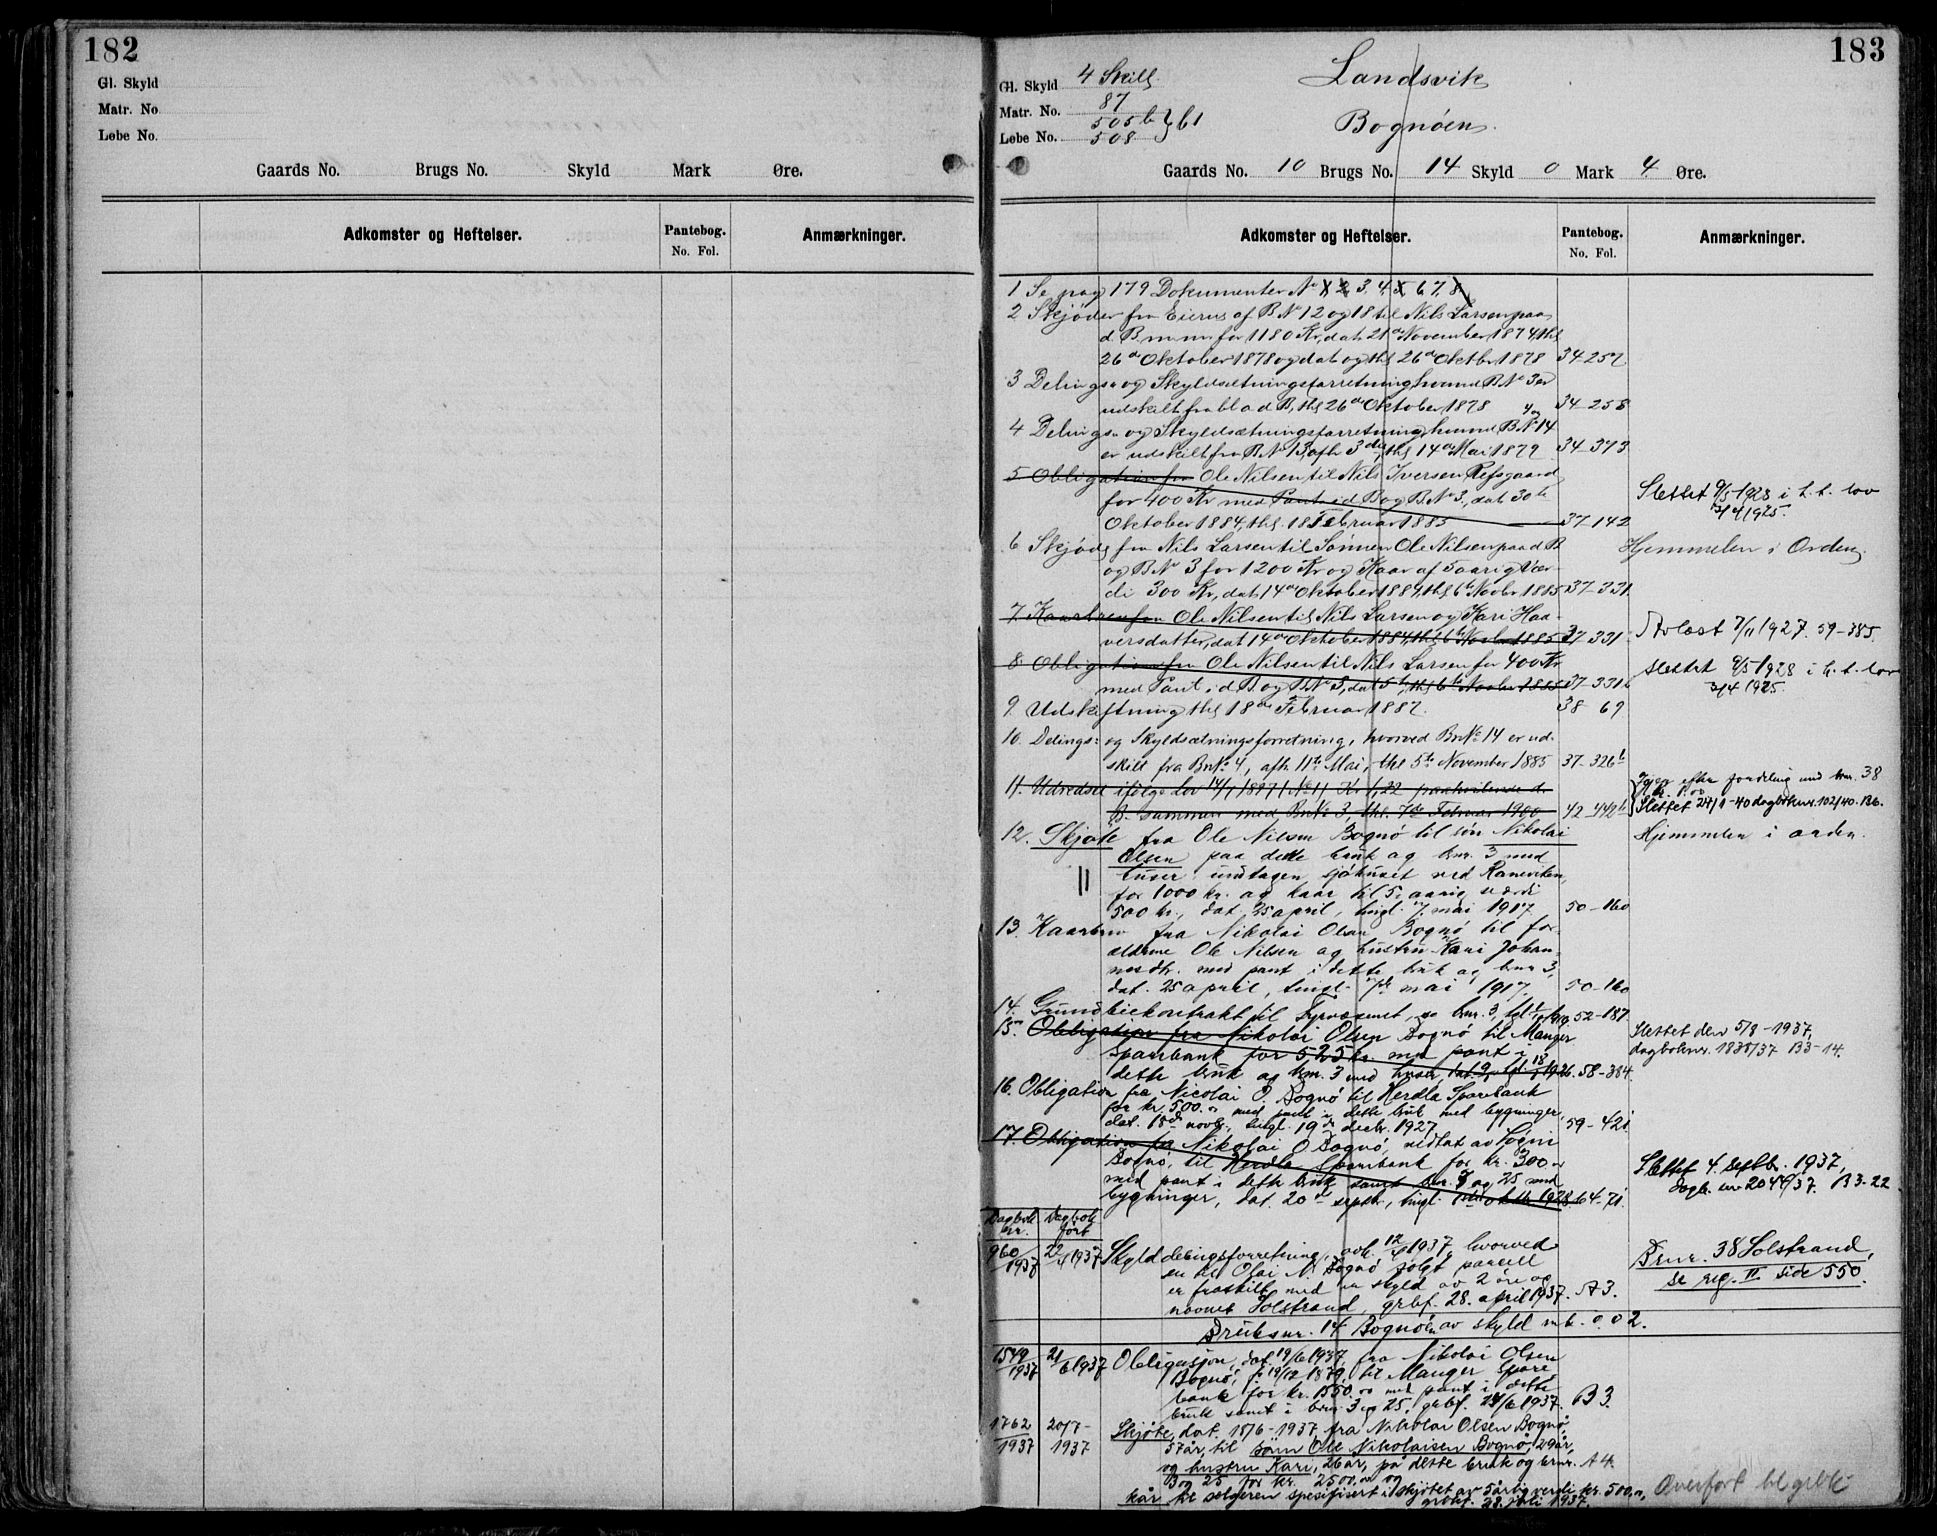 182
Gl. Skyld
Matr. No.
Løbe No.
Gaards No. Brugs No. Skyld Mark Øre.
Adkomster og Heftelser. Pantebog. No. Fol. Anmærkninger.
183
Gl. Skyld 4 Skill Landsvik
Matr. No. 87
Løbe No. 505 b 508 } b1 Bognøen
Gaards No. 10 Brugs No. 14 Skyld 0 Mark 4 Øre.
Adkomster og Heftelser. Pantebog. No. Fol. Anmærkninger.
1 Se pag 179 Dokumenter No 1, 2, 3, 4, 5, 6, 7, 8
2 Skjøder fra Eierne af B No 12 og 18 til Nils Larsen paa
d B. m. m. for 1180 Kr, dat. 21de November 1874, thl
26de Oktober 1878 og dat og thl 26de Oktbr 1878 34-257
3 Delings- og Skyldsætningsforretning hvorved B No 3 er
udskilt fra bl a d B, thl 26de Oktober 1878 34-258
4 Delings- og Skyldsætningsforretning hvorved B No 14
er udskilt fra B No 13, afh 3die, thl 14de Mai 1879 34-373
5 Obligation fra Ole Nilsen til Nils Iversen Refsgaard
for 400 Kr med Pant i d B og B No 3, dat. 30te
Oktober 1884, thl. 18 Februar 1885 37-142
Slettet 9/5 1928 i h. t. lov
3/4 1925.
6 Skjøde fra Nils Larsen til Sønnen Ole Nilsen paa d B
og B No 3 for 1200 Kr og Kaar af 5aarig Vær-
di 300 Kr, dat. 14de Oktober 1884, thl 6te Novbr 1885 37-331
Hjemmelen i Orden.
7 Kaarbrev fra Ole Nilsen til Nils Larsen og Kari Haa-
versdatter, dat 14de Oktober 1884, thl 6te Novbr 1885 37-331
Avlæst 7/11 1927. 59-385.
8 Obligation fra Ole Nilsen til Nils Larsen for 400 Kr
med Pant i d B og B No 3, dat 5te, thl 6te Novbr 1885 37-331b
slettet 9/5 1928 i h. t. lov
3/4 1925.
9 Udskiftning thl 18de Februar 1887. 38 69
10. Delings- og Skyldsætningsforretning, hvorved BrNo 14 er ud-
skilt fra BrNo 4, afh. 11te Mai, thl 5te November 1885 37-326b
11. Udredsel ifølge lov 14/1 1897 No 11 Kr 1,22 paahvilende d.
B. sammen med BrNo 3, thl. 7de Februar 1900 42-442b
efter fordeling med bnr. 38
Slettet 24/1-40 dagboknr. 102/40. B6.
12. Skjøte fra Ole Nilsen Bognø til søn Nikolai
Olsen paa dette bruk og bnr. 3 med
huser undtagen sjøhuset ved Ranevikен,
for 1000 kr. og kaar til 5 aarig værdi
500 kr., dat. 25 april, tingl. 7. mai 1917 50-160
Hjemmelen i orden.
13. Kaarbrev fra Nikolai Olsen Bognø til for-
ældrene Ole Nilsen og hustru Kari Johan-
nesdtr. med pant i dette bruk og bnr 3,
dat. 25 april, tingl. 7de mai 1917. 50-160
14. Grundleiekontrakt til Fyrvæsenet, se bnr. 3, 52-187.
15. Obligation fra Nikolai Olsen Bognø til Manger
Sparebank for 525 kr. med pant i
dette bruk og bnr. 3 med huser, 1926. 58-384.
Slettet den 5/8-1937,
dagboknr. 1838/37 B3-14.
16. Obligation fra Nicolai O. Bognø til Herdla Sparebank
for kr. 500.00 med pant i dette bruk med bygninger,
dat. 15de novbr., tingl. 19de decbr. 1927 59-421.
17. Obligation fra Nikolai O Bognø, vedtat av Søgni
Bognø, til Herdla Sparebank for kr. 300.00
med pant i dette bruk samt bnr. 3 og 25 med
bygninger, dat. 20de septbr., tingl. 1ste oktbr. 1928. 64-71.
Slettet 4. septbr. 1937,
dagb. nr 2049/37. B3-22
Dagbok nr. Dagbok ført
960/1937 22/4 1937 Skylddelingsforretning, avh. 12/4 1937, hvorved
en til Olai N. Bognø solgt parcell
er fraskilt med en skyld av 2 øre og
navnet Solstrand, grbf. 28. april 1937. A3.
Bnr. 38 Solstrand,
se reg. II side 550.
Bruksnr. 14 Bognøen av skyld mk. 0.02.
1579/1937 21/6 1937 Obligasjon, dat. 19/6 1937, fra Nikolai Olsen
Bognø, f. 19/12 1879, til Manger Spare-
bank for kr. 1550.00 med pant i dette
bruk samt i bnr. 3 og 25, grbf. 24/6 1937. B3.
1762/1937 20/7-1937 Skjøte, dat. 15/6-1937 fra Nikolai Olsen Bognø,
57 år, til sønn Ole Nikolaisen Bognø, 29 år,
og hustru Kari, 26 år, på dette bruk og bnr. A4.
3 og 25 for kr. 2500.00 og
kår til selgeren spesifisert i skjøtet av 5årlig verdi kr. 500.00,
grbf. 28. juli 1937.
Overført til grbk